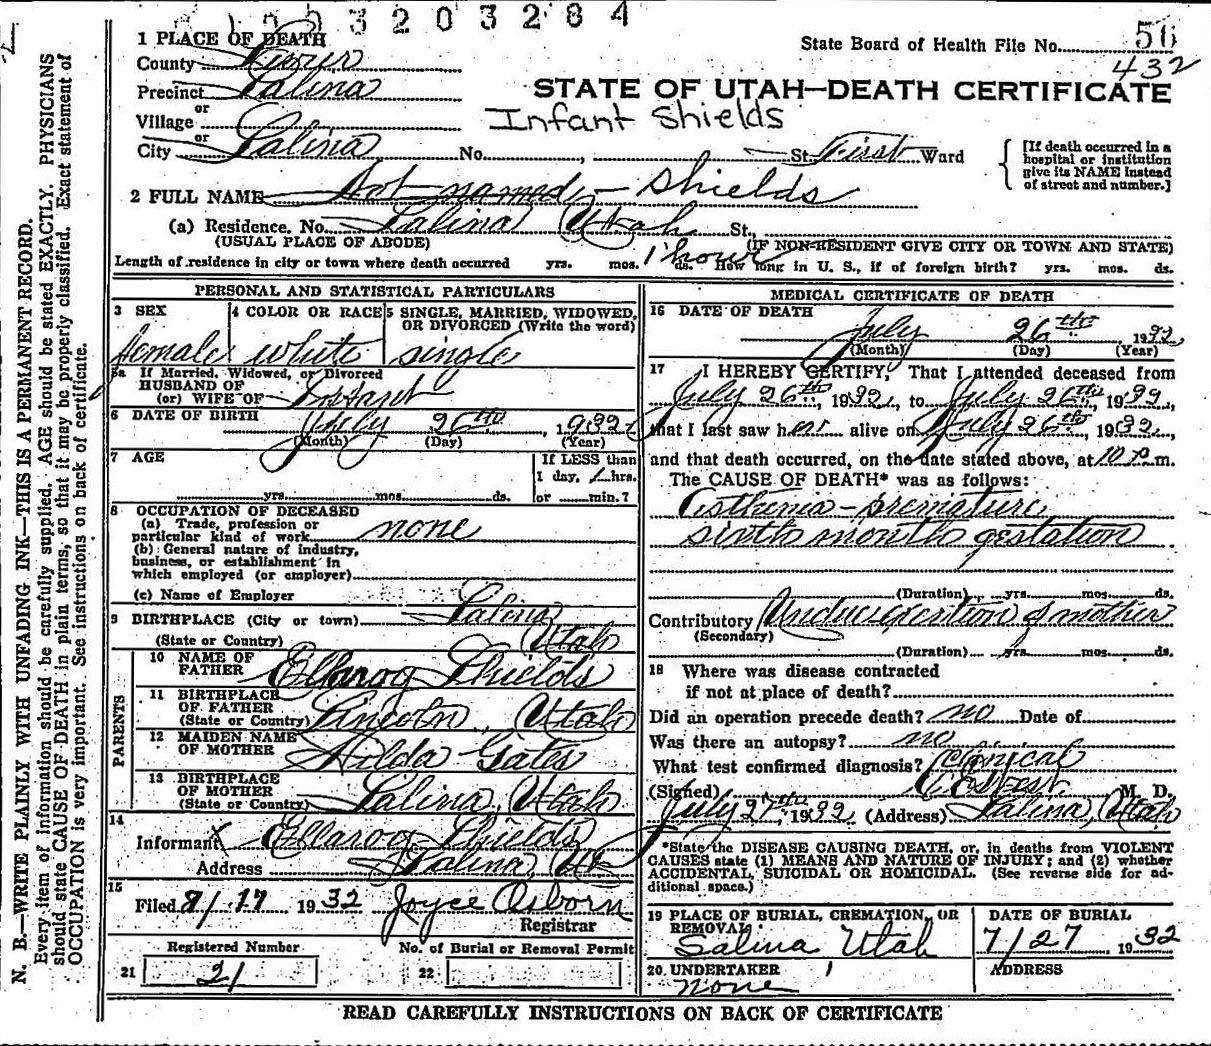 193203284
56
State Board of Health File No.
432
1 PLACE OF DEATH
County Sevier
Precinct Salina
or
Village
or
City Salina No. , St. First Ward
STATE OF UTAH—DEATH CERTIFICATE
Infant Shields
[If death occurred in a
hospital or institution
give its NAME instead
of street and number.]
2 FULL NAME Not named - Shields
(a) Residence. No. Salina Utah St.,
(USUAL PLACE OF ABODE) (IF NON-RESIDENT GIVE CITY OR TOWN AND STATE)
Length of residence in city or town where death occurred yrs. mos. 1 hour ds. How long in U. S., if of foreign birth? yrs. mos. ds.
PERSONAL AND STATISTICAL PARTICULARS
3 SEX 4 COLOR OR RACE 5 SINGLE, MARRIED, WIDOWED,
OR DIVORCED (Write the word)
female white single
5a If Married, Widowed, or Divorced
HUSBAND OF
(or) WIFE OF Infant
6 DATE OF BIRTH July 26th, 1932
(Month) (Day) (Year)
7 AGE If LESS than
1 day, 1 hrs.
yrs. mos. ds. or min.?
8 OCCUPATION OF DECEASED
(a) Trade, profession or
particular kind of work none
(b) General nature of industry,
business, or establishment in
which employed (or employer)
(c) Name of Employer
9 BIRTHPLACE (City or town) Salina
(State or Country) Utah
PARENTS
10 NAME OF
FATHER Ellaroy Shields
11 BIRTHPLACE
OF FATHER
(State or Country) Lincoln, Utah
12 MAIDEN NAME
OF MOTHER Hilda Gates
13 BIRTHPLACE
OF MOTHER
(State or Country) Salina, Utah
14
Informant X Ellaroy Shields
Address Salina, Ut
15
Filed 8/17 1932 Joyce Osborn
Registrar
Registered Number No. of Burial or Removal Permit
21 21 22
MEDICAL CERTIFICATE OF DEATH
16 DATE OF DEATH
July 26th 1932
(Month) (Day) (Year)
17 I HEREBY CERTIFY, That I attended deceased from
July 26th, 1932, to July 26th, 1932,
that I last saw her alive on July 26th, 1932,
and that death occurred, on the date stated above, at 10 p m.
The CAUSE OF DEATH* was as follows:
Asthenia - premature
sixth months gestation
(Duration) yrs. mos. ds.
Contributory Undue exertion of mother
(Secondary)
(Duration) yrs. mos. ds.
18 Where was disease contracted
if not at place of death?
Did an operation precede death? no Date of
Was there an autopsy? no
What test confirmed diagnosis? Clinical
(Signed) M. D.
July 27th 1932 (Address) Salina, Utah
*State the DISEASE CAUSING DEATH, or, in deaths from VIOLENT
CAUSES state (1) MEANS AND NATURE OF INJURY; and (2) whether
ACCIDENTAL, SUICIDAL OR HOMICIDAL. (See reverse side for ad-
ditional space.)
19 PLACE OF BURIAL, CREMATION, OR
REMOVAL
Salina Utah
DATE OF BURIAL
7/27, 1932
20. UNDERTAKER
none
ADDRESS
READ CAREFULLY INSTRUCTIONS ON BACK OF CERTIFICATE
N. B.—WRITE PLAINLY WITH UNFADING INK—THIS IS A PERMANENT RECORD.
Every item of information should be carefully supplied. AGE should be stated EXACTLY. PHYSICIANS
should state CAUSE OF DEATH in plain terms, so that it may be properly classified. Exact statement of
OCCUPATION is very important. See instructions on back of certificate.